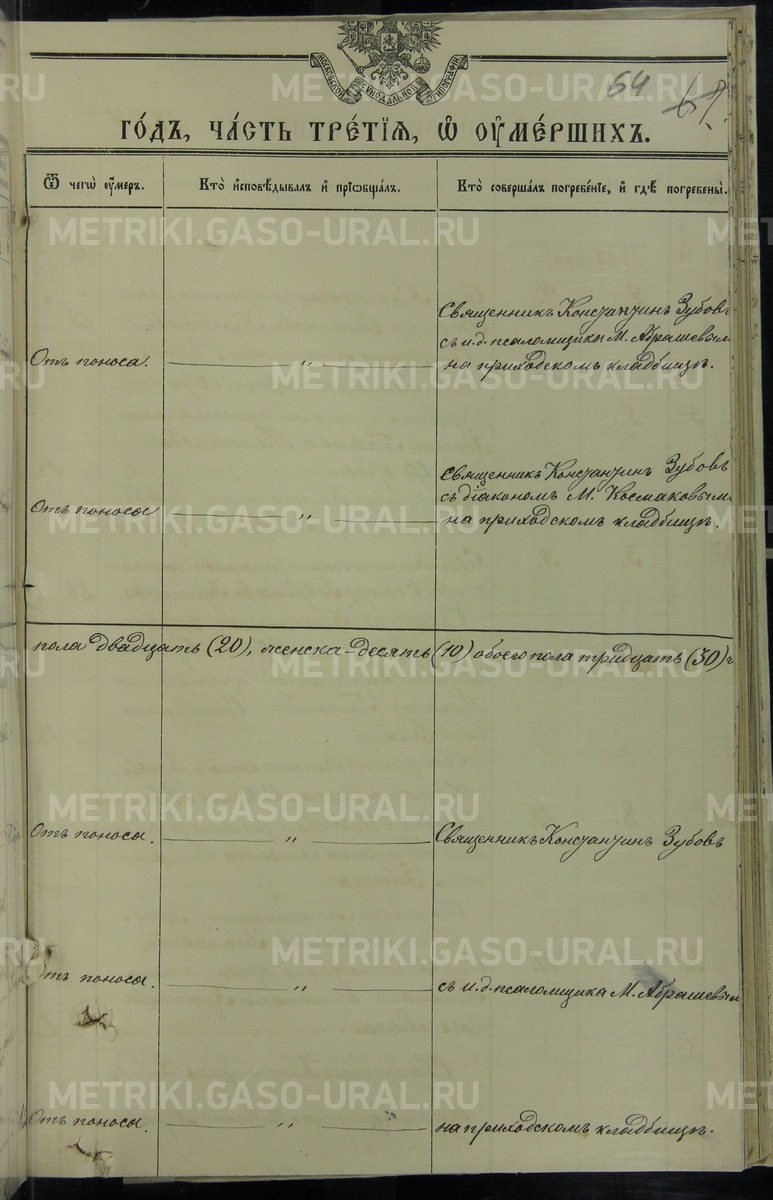 МОСКОВСКОЙ СѴНОДАЛЬНОЙ ТИПОГРАФІИ
64
ГО́ДЪ, ЧА́СТЬ ТРЕ́ТІѦ, Ѡ҆ ОУ҆МЕ́РШИХЪ.
Ѿ чегѡ̀ оу҆́меръ.
Кто̀ и҆сповѣ́дывалъ и҆ прїѡбща́лъ.
Кто̀ соверша́лъ погребе́нїе, и҆ гдѣ̀ погребены̀.
Отъ поноса. — " —
Священникъ Константинъ Зубовъ
съ и.д. псаломщика М. Абрашевым
на приходскомъ кладбищѣ.
Отъ поноса — " —
Священникъ Константинъ Зубовъ
съ діакономъ М. Космаковым
на приходскомъ кладбищѣ.
пола двадцать (20), женска - десять (10) обоего пола тридцать (30)
Отъ поноса. — " — Священникъ Константинъ Зубовъ
Отъ поноса. — " — съ и.д. псаломщика М. Абрашевым
Отъ поноса. — " — на приходскомъ кладбищѣ.
METRIKI.GASO-URAL.RU